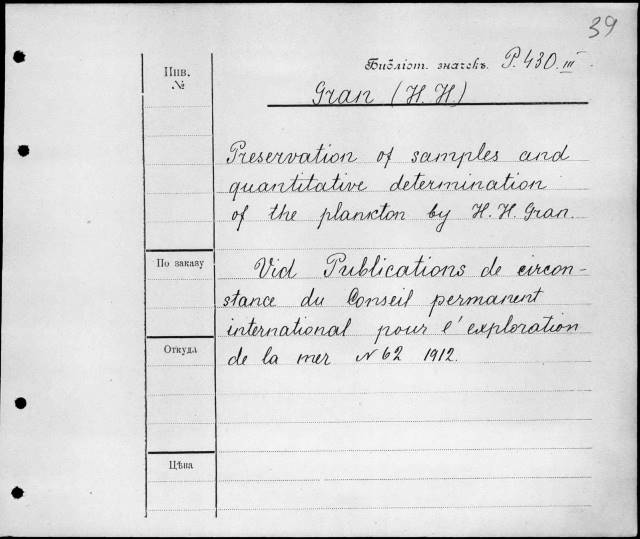 39
Библіот. значекъ. P. 430. III
Инв.
№
Gran (H. H.)
Preservation of samples and
quantitative determination
of the plankton by H. H. Gran.
По заказу
Vid Publications de circon-
stance du Conseil permanent
international pour l'exploration
Откуда
de la mer N 62 1912.
Цѣна